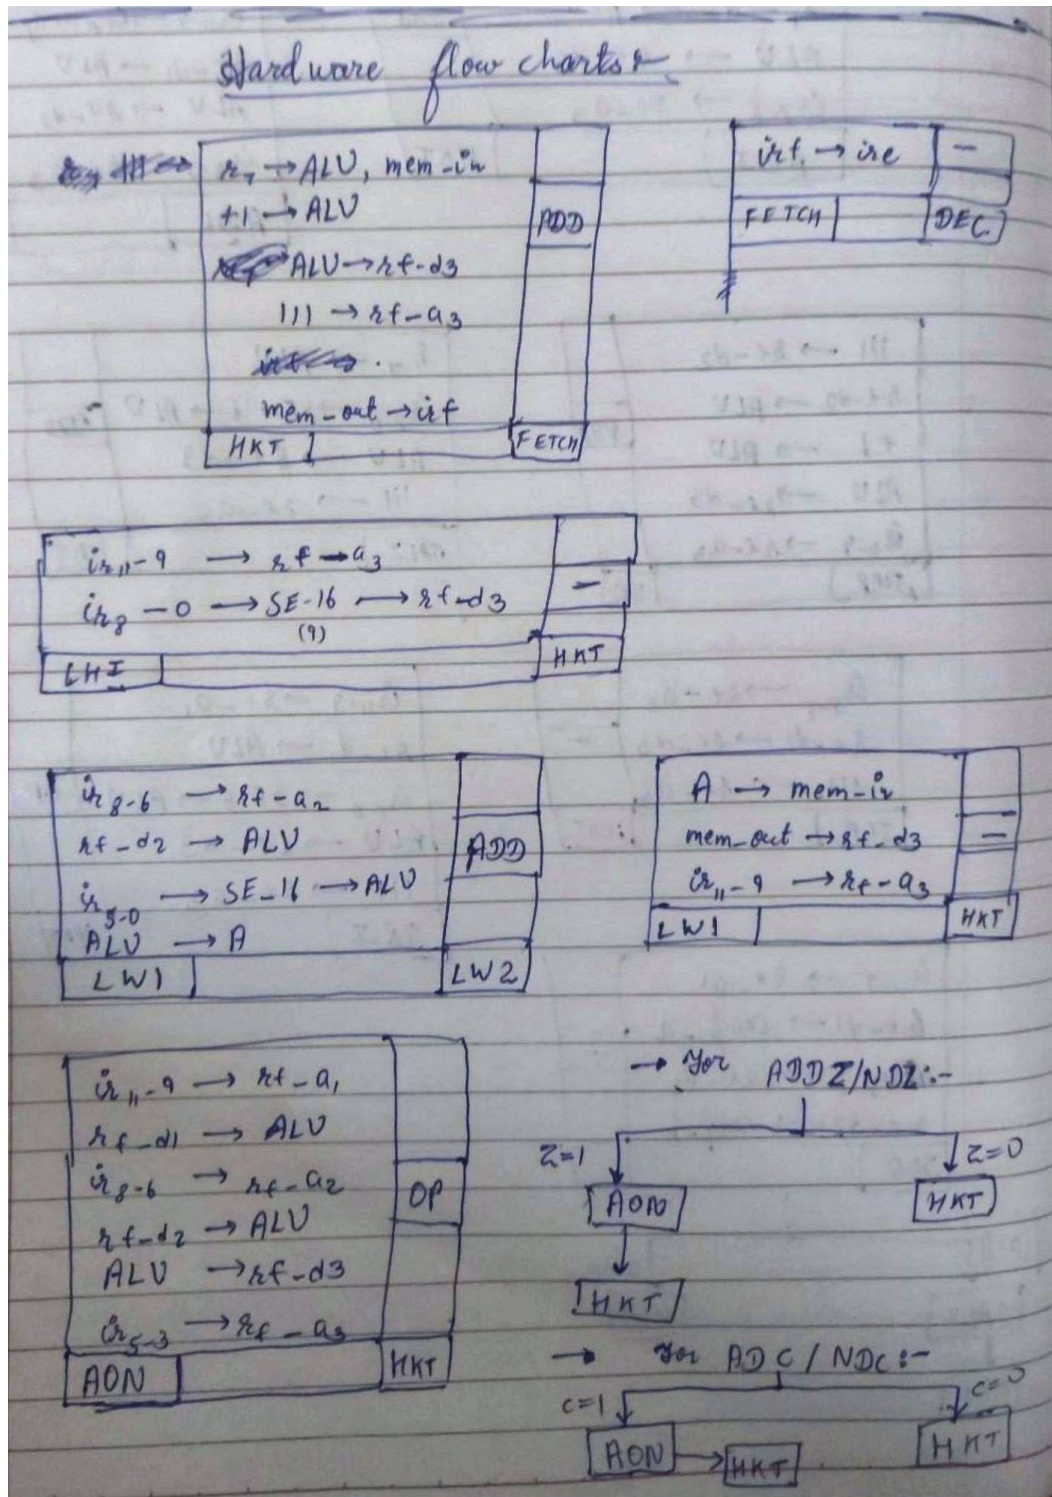 Hardware flow charts
r7 → ALU, mem-in
+1 → ALU
ADD
ALU → rf-d3
111 → rf-a3
mem_out → irf
HKT FETCH
irf → ire -
FETCH DEC
ir11-9 → rf-a3
ir8-0 → SE-16 → rf-d3 -
(9)
LHI HKT
ir8-6 → rf-a2
rf-d2 → ALU ADD
ir5-0 → SE-16 → ALU
ALU → A
LW1 LW2
A → mem-in
mem_out → rf-d3 -
ir11-9 → rf-a3
LW1 HKT
ir11-9 → rf-a1
rf-d1 → ALU
ir8-6 → rf-a2 OP
rf-d2 → ALU
ALU → rf-d3
ir5-3 → rf-a3
AON HKT
→ For ADDZ/NDZ:-
Z=1 Z=0
AON HKT
HKT
→ For ADC/NDC:-
C=1 C=0
AON → HKT HKT